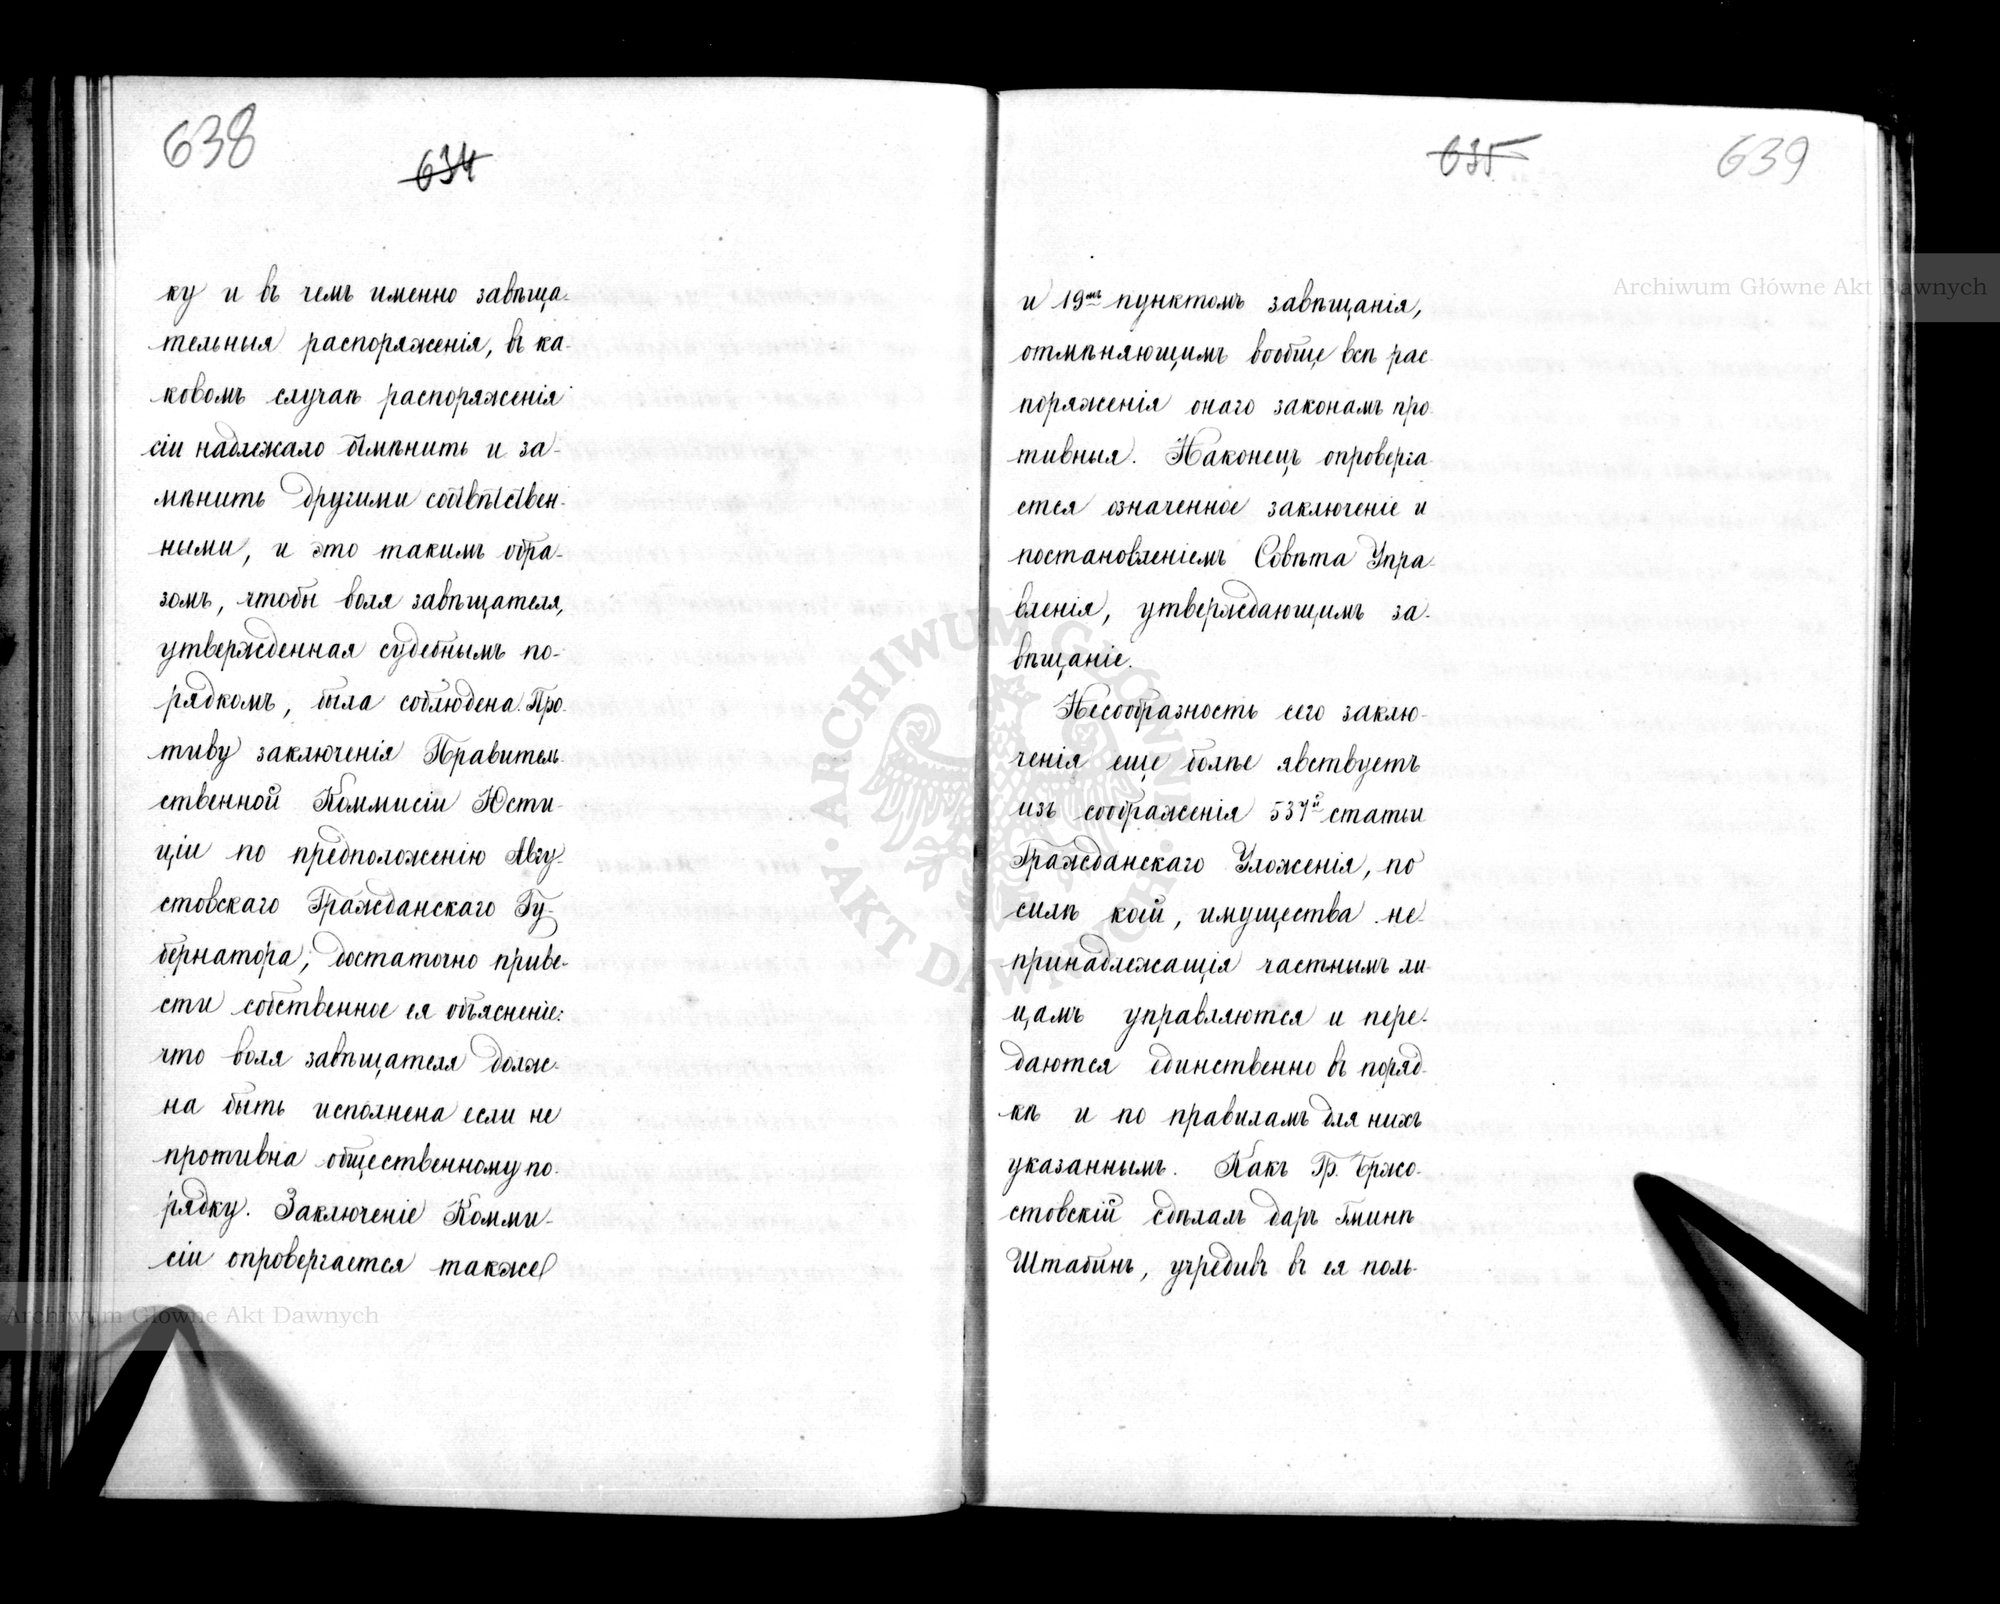 638
634
ку и въ чемъ именно завѣща-
тельныя распоряженія, въ ка-
ковомъ случаѣ распоряженія
сіи надлежало отмѣнить и за-
мѣнить другими соотвѣтствен-
ными, и это такимъ обра-
зомъ, чтобы воля завѣщателя,
утвержденная судебнымъ по-
рядкомъ, была соблюдена. Про-
тиву заключенія Правитель-
ственной Коммисіи Юсти-
ціи по предположенію Авгу-
стовскаго Гражданскаго Гу-
бернатора, достаточно приве-
сти собственное ея объясненіе:
что воля завѣщателя долж-
на быть исполнена если не
противна общественному по-
рядку. Заключеніе Комми-
сіи опровергается также
635
639
и 19мъ пунктомъ завѣщанія,
отмѣняющимъ вообще всѣ рас-
поряженія онаго законамъ про-
тивныя. Наконецъ опроверга-
ется означенное заключеніе и
постановленіемъ Совѣта Упра-
вленія, утверждающимъ за-
вѣщаніе.
Несообразность сего заклю-
ченія еще болѣе явствуетъ
изъ соображенія 537й статьи
Гражданскаго Уложенія, по
силѣ коей, имущества не-
принадлежащія частнымъ ли-
цамъ управляются и пере-
даются единственно въ поряд-
кѣ и по правиламъ для нихъ
указаннымъ. Какъ Гр. Бржо-
стовскій сдѣлалъ даръ Гминѣ
Штабинъ, учредивъ въ ея поль-
Archiwum Główne Akt Dawnych
Archiwum Główne Akt Dawnych
ARCHIWUM GŁÓWNE · AKT DAWNYCH ·